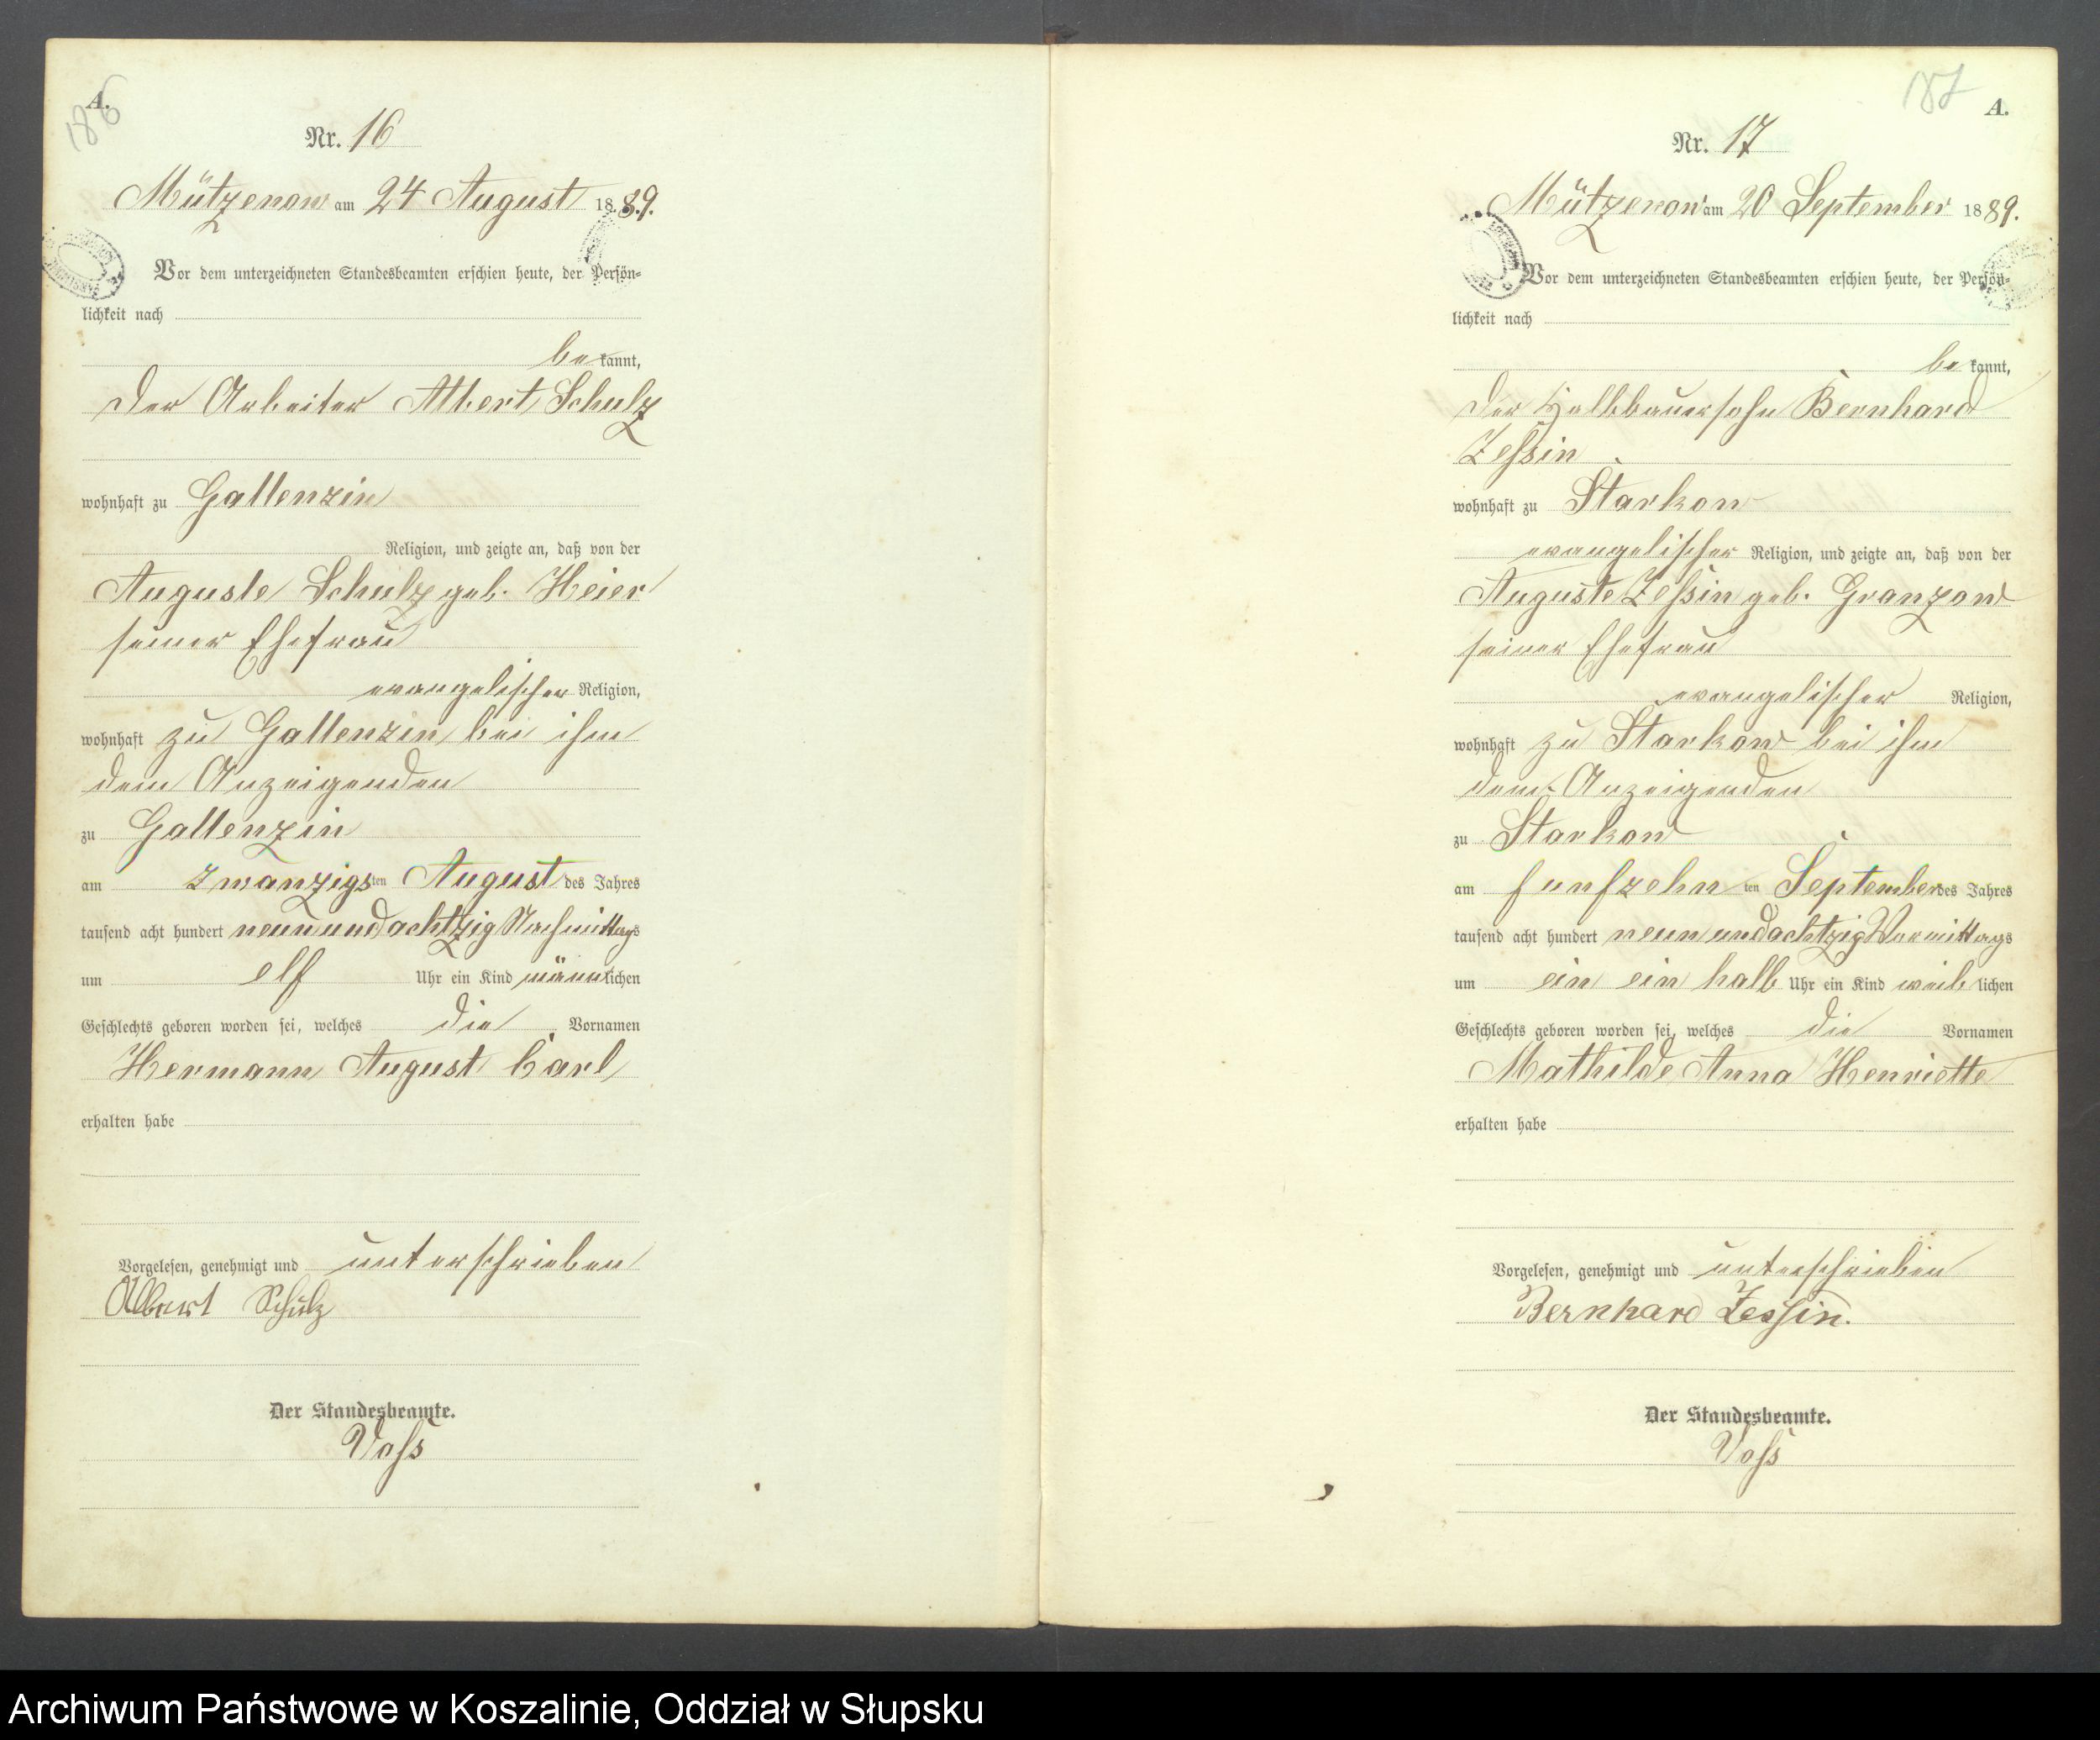 186
A.
Nr. 16
Mützenow am 24 August 1889.
Vor dem unterzeichneten Standesbeamten erschien heute, der Persön-
lichkeit nach
be kannt,
der Arbeiter Albert Schulz
wohnhaft zu Gallenzin
Religion, und zeigte an, daß von der
Auguste Schulz geb. Heier
seiner Ehefrau
evangelischer Religion,
wohnhaft zu Gallenzin bei ihm
dem Anzeigenden
zu Gallenzin
am zwanzigsten August des Jahres
tausend acht hundert neunundachtzig Nachmittags
um elf Uhr ein Kind männlichen
Geschlechts geboren worden sei, welches die Vornamen
Hermann August Carl
erhalten habe
Vorgelesen, genehmigt und unterschrieben
Albert Schulz
Der Standesbeamte.
Voss
187
A.
Nr. 17
Mützenow am 20 September 1889.
Vor dem unterzeichneten Standesbeamten erschien heute, der Persön-
lichkeit nach
be kannt,
der Halbbauersohn Bernhard
Zessin
wohnhaft zu Starkow
evangelischer Religion, und zeigte an, daß von der
Auguste Zessin geb. Granzow
seiner Ehefrau
evangelischer Religion,
wohnhaft zu Starkow bei ihm
dem Anzeigenden
zu Starkow
am funfzehnten September des Jahres
tausend acht hundert neunundachtzig Vormittags
um ein ein halb Uhr ein Kind weiblichen
Geschlechts geboren worden sei, welches die Vornamen
Mathilde Anna Henriette
erhalten habe
Vorgelesen, genehmigt und unterschrieben
Bernhard Zessin.
Der Standesbeamte.
Voss
Archiwum Państwowe w Koszalinie, Oddział w Słupsku